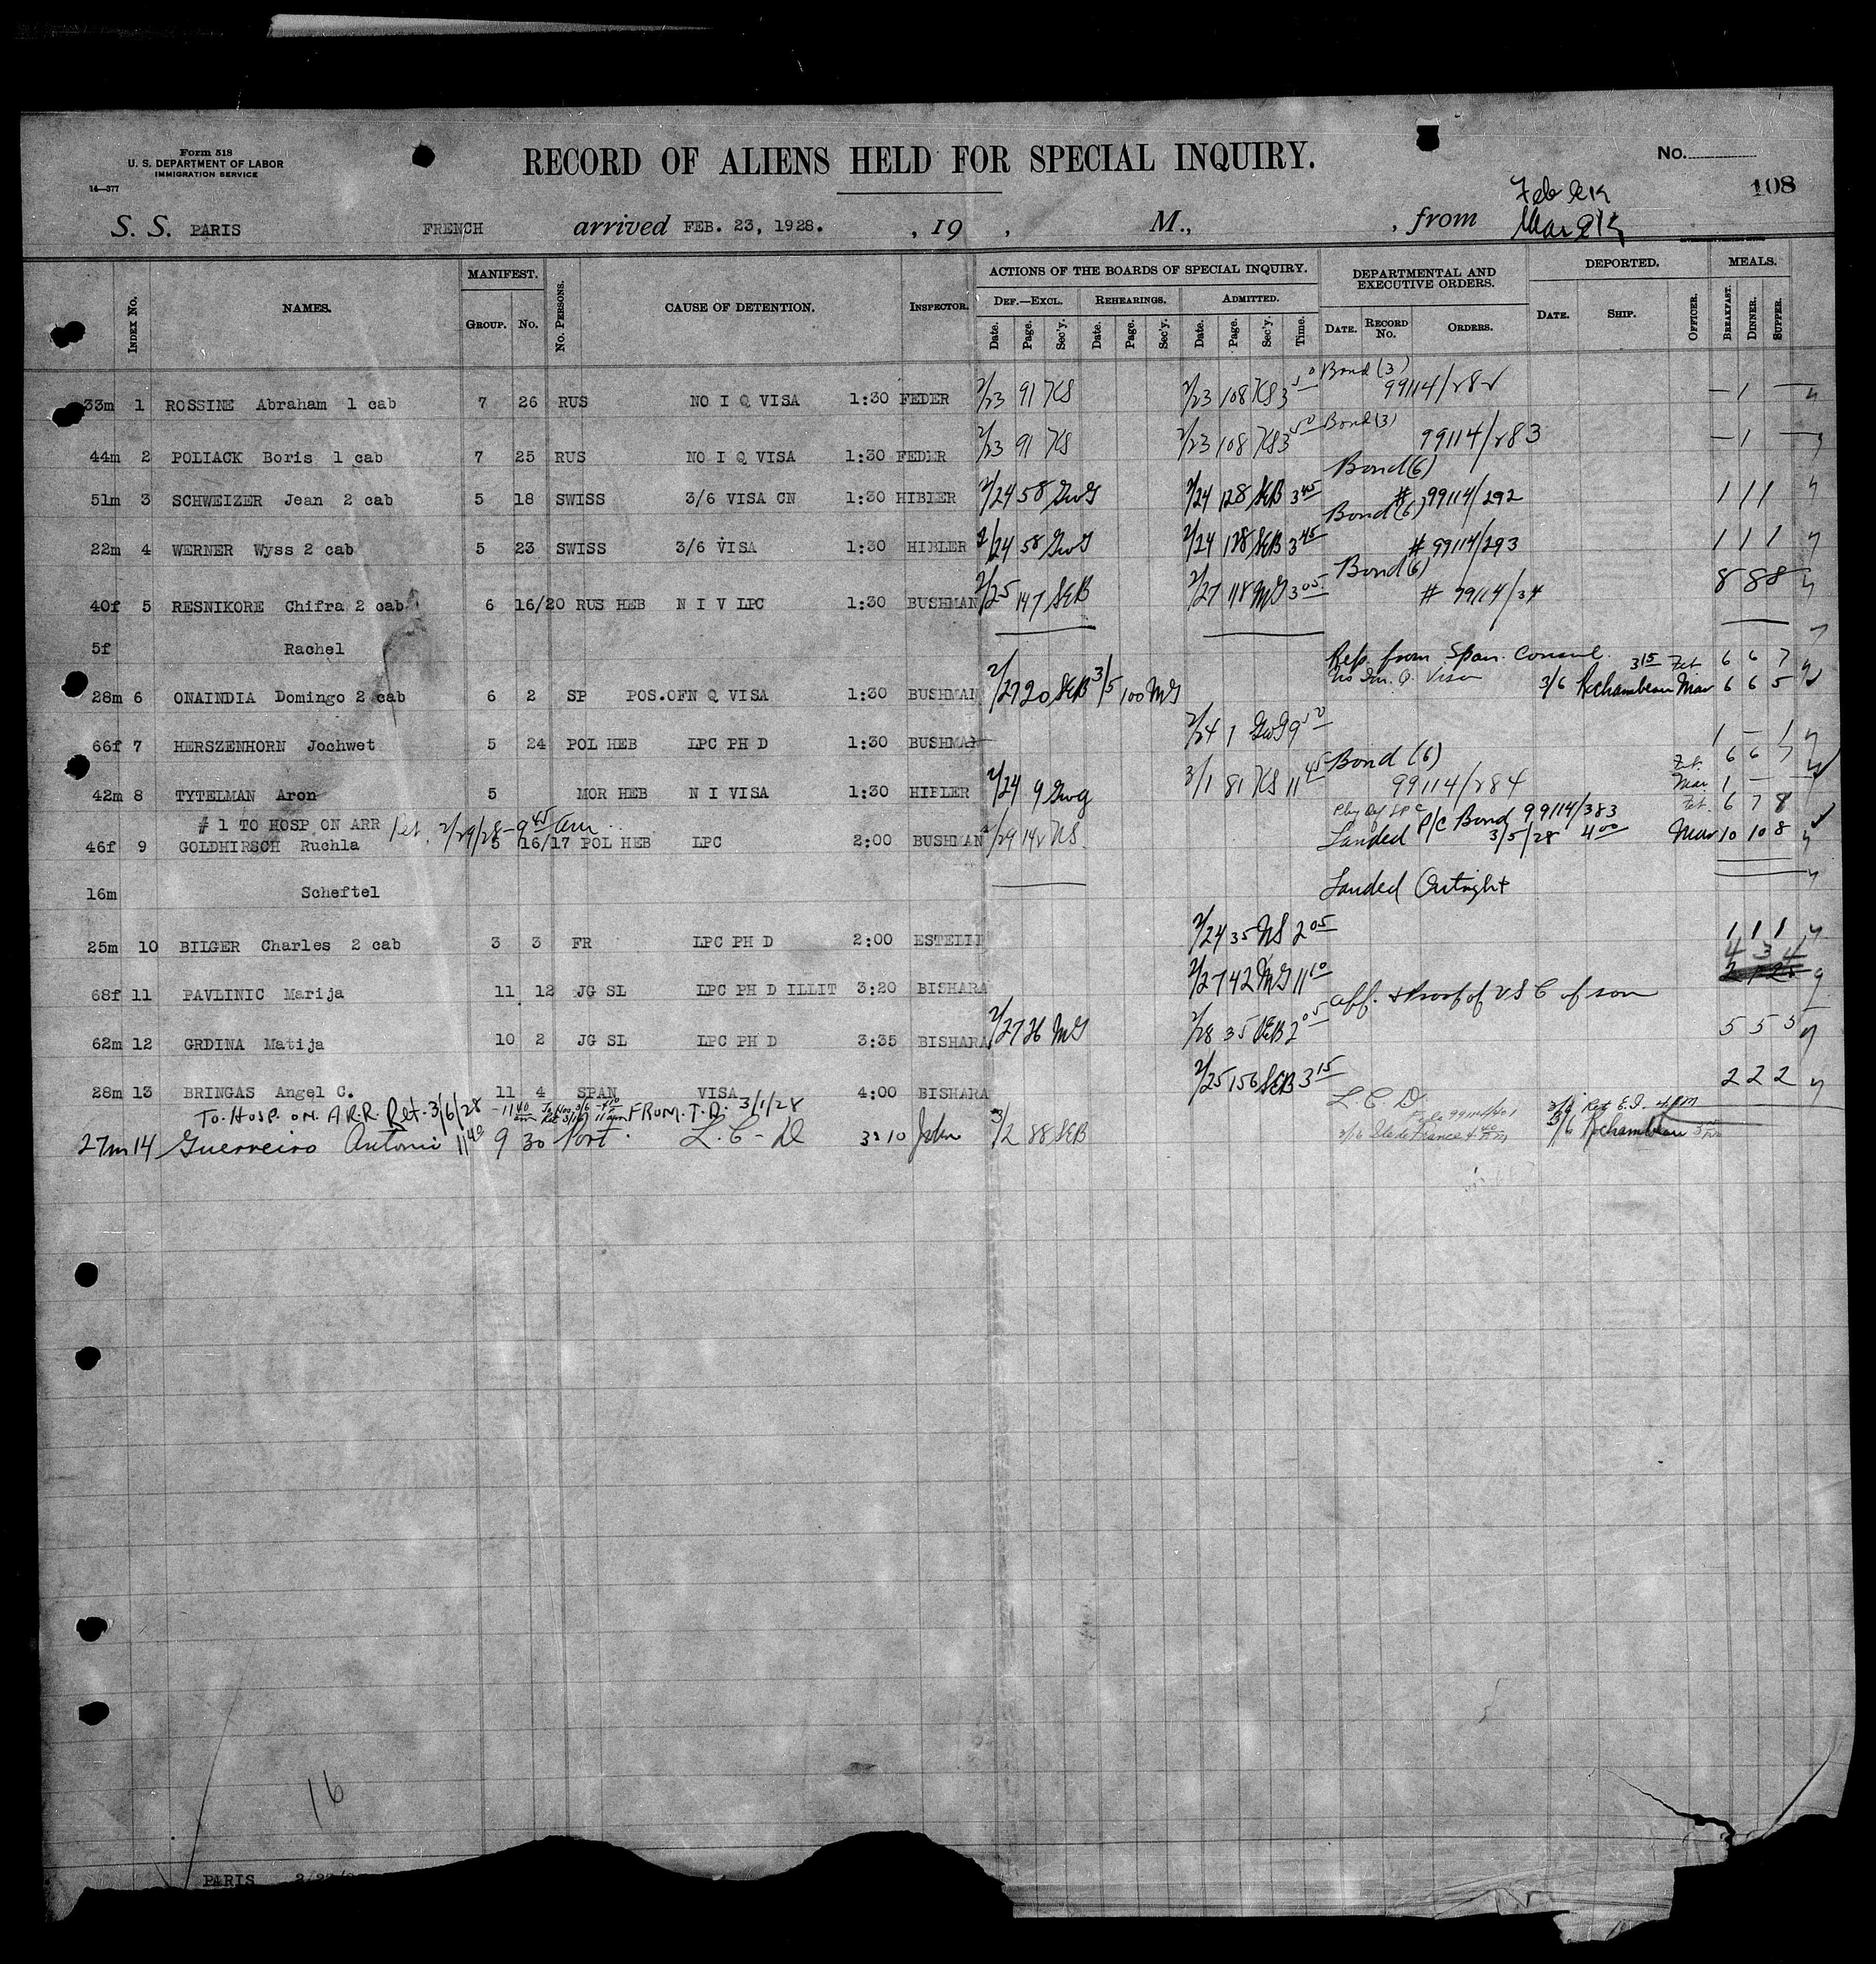 Form 518
U. S. DEPARTMENT OF LABOR
IMMIGRATION SERVICE
14—377
RECORD OF ALIENS HELD FOR SPECIAL INQUIRY.
No.
108
S. S. PARIS FRENCH arrived FEB. 23, 1928. , 19 , M., , from
INDEX No. NAMES. MANIFEST. GROUP. No. No. PERSONS. CAUSE OF DETENTION. INSPECTOR. ACTIONS OF THE BOARDS OF SPECIAL INQUIRY. DEF.—EXCL. Date. Page. Sec'y. REHEARINGS. Date. Page. Sec'y. ADMITTED. Date. Page. Sec'y. Time. DEPARTMENTAL AND EXECUTIVE ORDERS. DATE. RECORD No. ORDERS. DEPORTED. DATE. SHIP. OFFICER. MEALS. BREAKFAST. DINNER. SUPPER.
33m 1 ROSSINE Abraham 1 cab 7 26 RUS NO I Q VISA 1:30 FEDER 2/23 91 KS 2/23 108 KS 3 50 Bond (3) 99114/282 — 1 —
44m 2 POLIACK Boris 1 cab 7 25 RUS NO I Q VISA 1:30 FEDER 2/23 91 KS 2/23 108 KS 3 50 Bond (3) 99114/283 — 1 —
51m 3 SCHWEIZER Jean 2 cab 5 18 SWISS 3/6 VISA CN 1:30 HIBLER 2/24 58 GWG 2/24 128 SEB 3 45 Bond (6) # 99114/292 1 1 1
22m 4 WERNER Wyss 2 cab 5 23 SWISS 3/6 VISA 1:30 HIBLER 2/24 58 GWG 2/24 128 SEB 3 45 Bond (6) # 99114/293 1 1 1
40f 5 RESNIKORE Chifra 2 cab 6 16/20 RUS HEB N I V LPC 1:30 BUSHMAN 2/25 147 SEB 2/27 118 MG 3 05 Bond (6) # 99114/34 8 8 8
5f Rachel
28m 6 ONAINDIA Domingo 2 cab 6 2 SP POS.OFN Q VISA 1:30 BUSHMAN 2/27 20 SEB 3/5 100 MG Rep. from Span. Consul. No Im. Q. Visa 3/6 Rochambeau 3 15 Feb 6 6 7 Mar 6 6 5
66f 7 HERSZENHORN Jochwet 5 24 POL HEB LPC PH D 1:30 BUSHMAN 2/24 1 GWG 9 50 1 — 1
42m 8 TYTELMAN Aron 5 MOR HEB N I VISA 1:30 HIBLER 2/24 9 GWG 3/1 81 KS 11 45 Bond (6) 99114/284 Feb. 6 6 7 Mar 1 — —
# 1 TO HOSP ON ARR Ret. 2/29/28 - 9 45 am
46f 9 GOLDHIRSCH Ruchla 5 16/17 POL HEB LPC 2:00 BUSHMAN 2/29 142 NS Landed P/C Bond 99114/383 3/5/28 4 00 Feb. 6 7 8 Mar 10 10 8
16m Scheftel Landed Outright
25m 10 BILGER Charles 2 cab 3 3 FR LPC PH D 2:00 2/24 35 NS 2 05 1 1 1
68f 11 PAVLINIC Marija 11 12 JG SL LPC PH D ILLIT 3:20 BISHARA 2/27 42 MG 11 10 4 3 4
62m 12 GRDINA Matija 10 2 JG SL LPC PH D 3:35 BISHARA 2/27 26 MG 2/28 35 SEB 2 05 aff. & Proof of U S C of son 5 5 5
28m 13 BRINGAS Angel C. 11 4 SPAN VISA 4:00 BISHARA 2/25 156 SEB 3 15 2 2 2
TO. HOSP. ON. ARR. Ret. 3/6/28 - 11 40 am FROM. T.D. 3/1/28
27m 14 Guerreiro Antonio 11 40 9 30 Port. L. C - D 3:10 John 3/2 88 SEB L. C. D. Ile de France 3/6 Rochambeau
16
PARIS